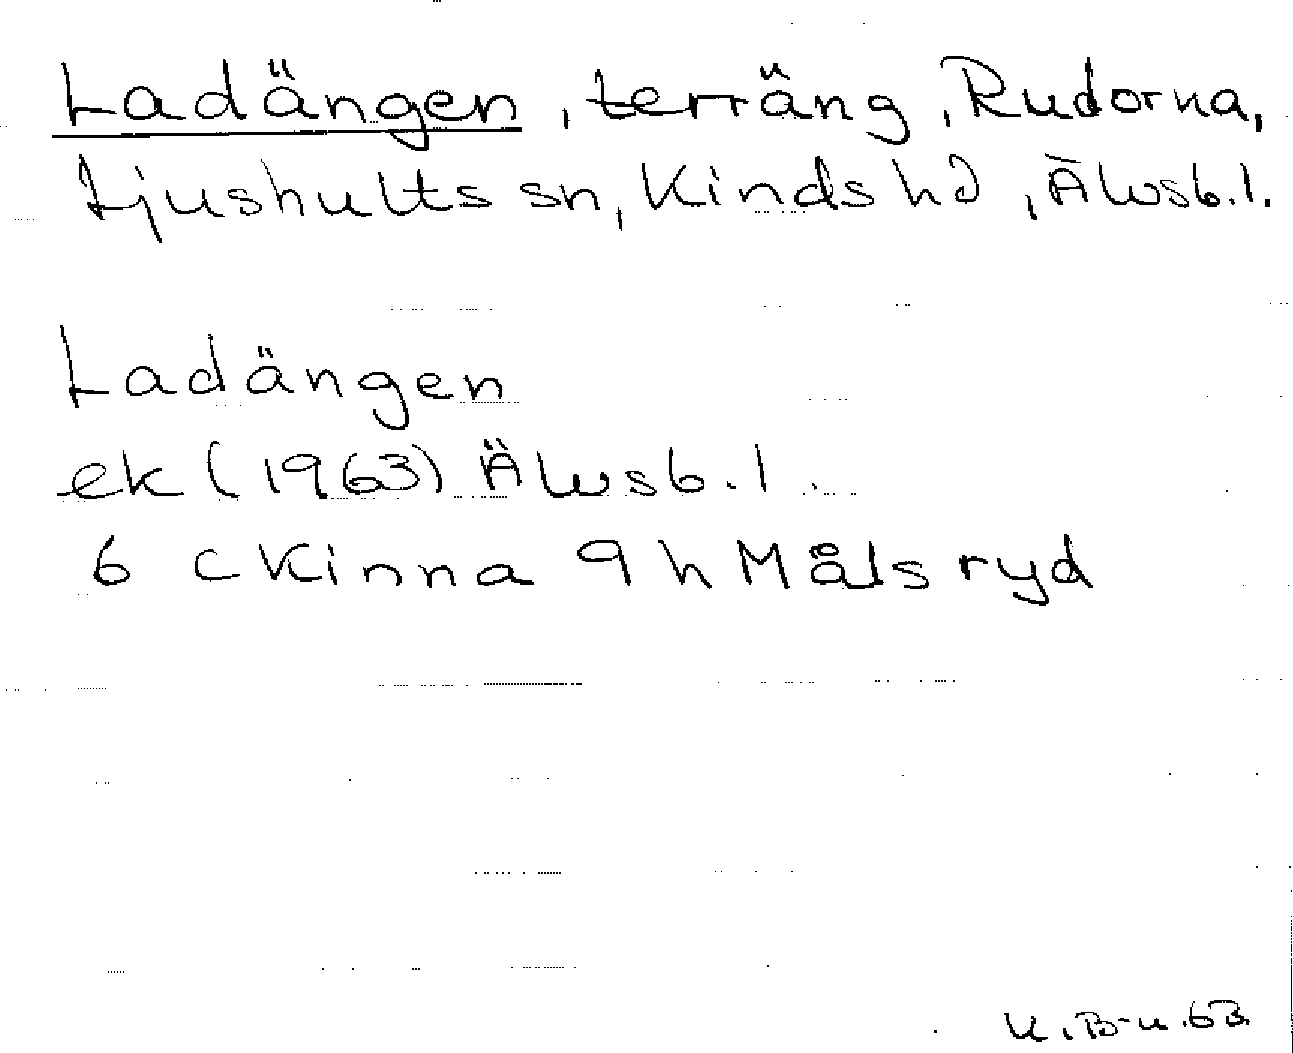 Ladängen, terräng, Rudorna,
Ljushults sn, Kinds hd, Älvsb.l.
Ladängen
ek (1963) Älvsb.l.
6 c Kinna 9 h Målsryd
U.B-u.63